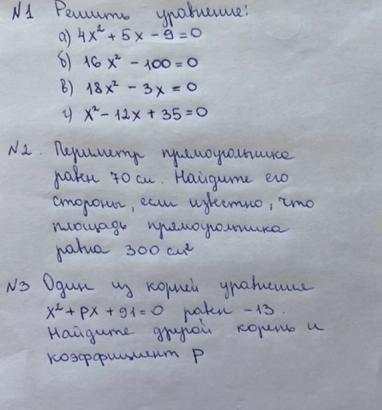 N1 Решить уравнение:
а) 4x² + 5x - 9 = 0
б) 16x² - 100 = 0
в) 18x² - 3x = 0
г) x² - 12x + 35 = 0
N2. Периметр прямоугольника
равен 70 см. Найдите его
стороны, если известно, что
площадь прямоугольника
равна 300 см²
N3 Один из корней уравнения
x² + px + 91 = 0 равен -13.
Найдите другой корень и
коэффициент p